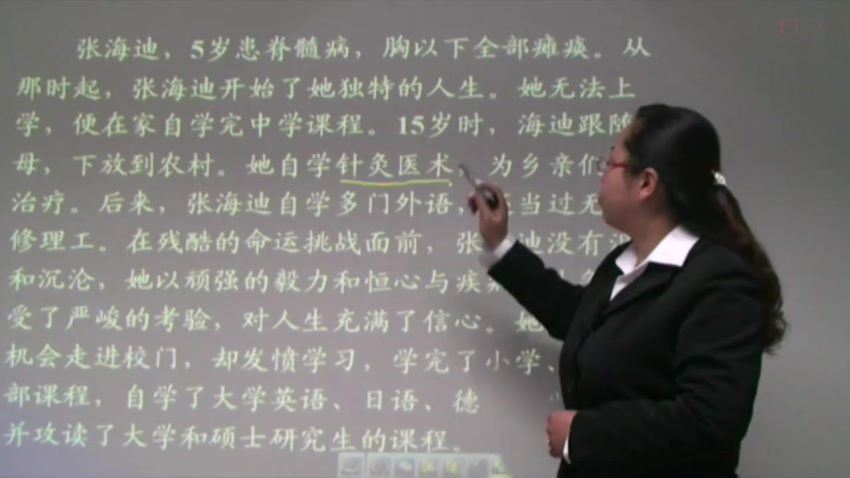 张海迪，5岁患脊髓病，胸以下全部瘫痪。从
那时起，张海迪开始了她独特的人生。她无法上
学，便在家自学完中学课程。15岁时，海迪跟随
母，下放到农村。她自学针灸医术，为乡亲们
治疗。后来，张海迪自学多门外语，当过无
修理工。在残酷的命运挑战面前，张迪没有
和沉沦，她以顽强的毅力和恒心与疾
受了严峻的考验，对人生充满了信心。她
机会走进校门，却发愤学习，学完了小学、
部课程，自学了大学英语、日语、德
并攻读了大学和硕士研究生的课程。